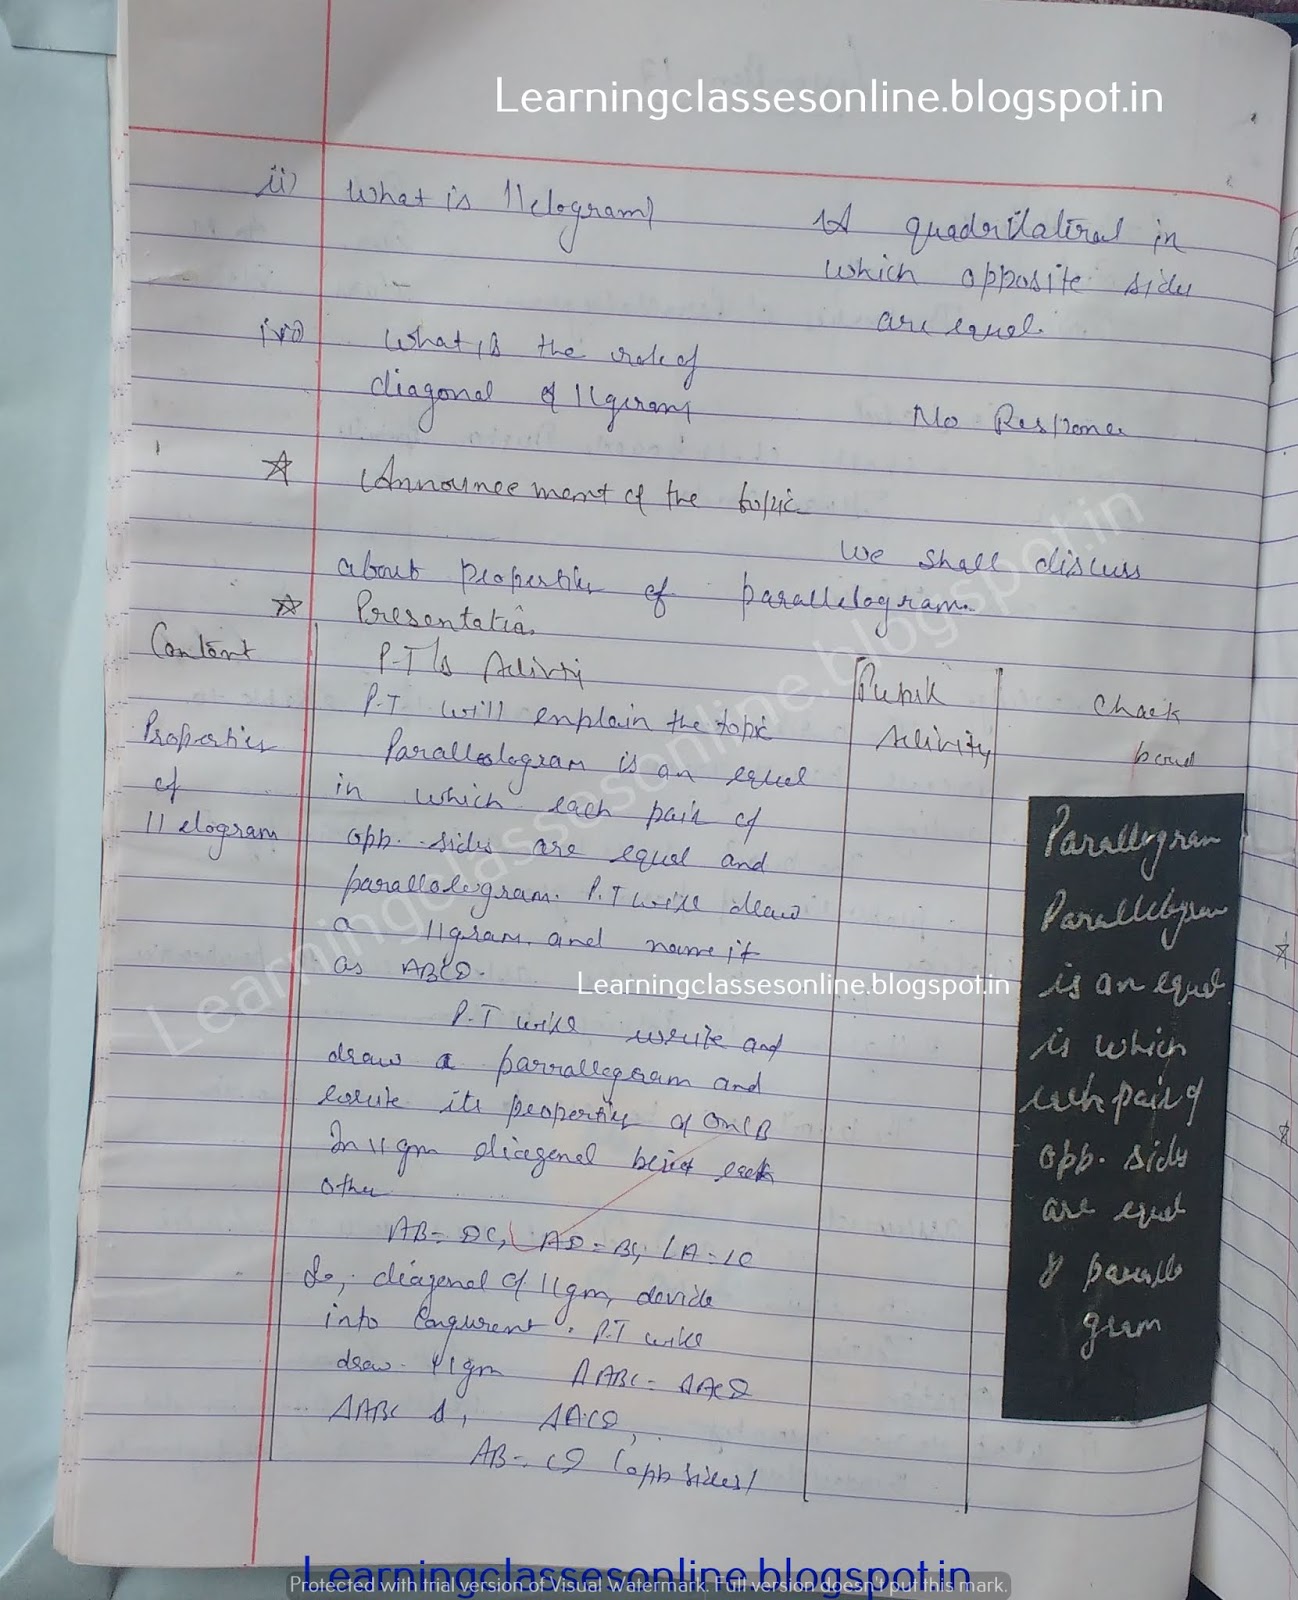 Learningclassesonline.blogspot.in
ii) What is 11elogram?
A quadrilateral in
which opposite sides
are equal.
iv) What is the role of
diagonal of 11gram
No Response
Announcement of the topic
We shall discuss
about properties of parallelogram.
Presentation
Content
P.T's Activity
Pupil
Activity
Chack
board
Properties
of
11 elogram
P.T will explain the topic
Parallelogram is an equal
in which each pair of
opp. sides are equal and
parallelogram. P.T will draw
a 11gram. and name it
as ABCD.
P.T will write and
draw a parrallegram and
write its properties of
In 11gm diagonal bisect each
other
AB = DC, AD = BC, ∠A = ∠C
So, diagonal of 11gm, devide
into Congurent. P.T will
draw 11gm ΔABC = ΔACD
ΔABC Δ, ΔACD,
AB = CD (opp sides)
Parallegram
Parallelogram
is an equal
is which
each pair of
opp. sides
are equal
& paralle
gram
Learningclassesonline.blogspot.in
Learningclassesonline.blogspot.in
Learningclassesonline.blogspot.in
Protected with trial version of Visual Watermark. Full version doesn't put this mark.